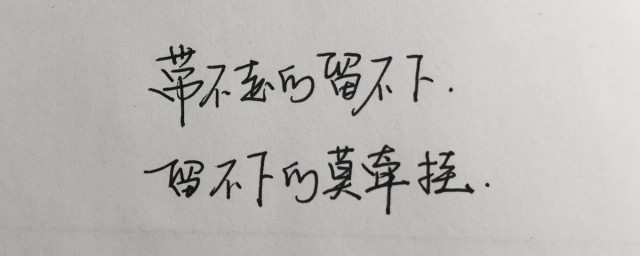 带不走的留不下.
留不下的莫牵挂.